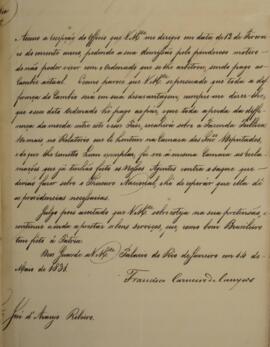 Accuso a recepção do Officio que V. Mce. me dirigio em data de 12 de Feverei-
ro do corrente anno, pedindo a sua demissão pelo ponderoso motivo
de não poder viver com o Ordenado que se lhe arbitrou, sendo pago ao
Cambio actual. E como parece que V. Mce. representando que toda a dif-
ferença do Cambio seja em sua desvantagem, cumpre me dizer-lhe,
que esse seu Ordenado he pago ao par, e que toda a perda da dif-
ferença da moeda entre este e esse Paiz, recahirá sobre a Fazenda Publica.
He mas no Relatorio que li hontem na Camara dos Srs. Deputados,
de que lhe remetto hum exemplar, fiz ver á mesma Camara as recla-
mações que já tenhão feito os Nossos Agentes contra o saque que
devião fazer sobre o Thesouro Nacional, e he de esperar que ella dê
as providencias necessarias.
Julgo pois acertado que V. Mce. sobresteja na sua pretensão,
e continue ainda a prestar os bons serviços, que como bom Brasileiro
tem feito á Patria.
Deos Guarde a V. Mce. Palacio do Rio de Janeiro em 14 de
Maio de 1831.
Francisco Carneiro de Campos
Snr. José d'Araujo Ribeiro.